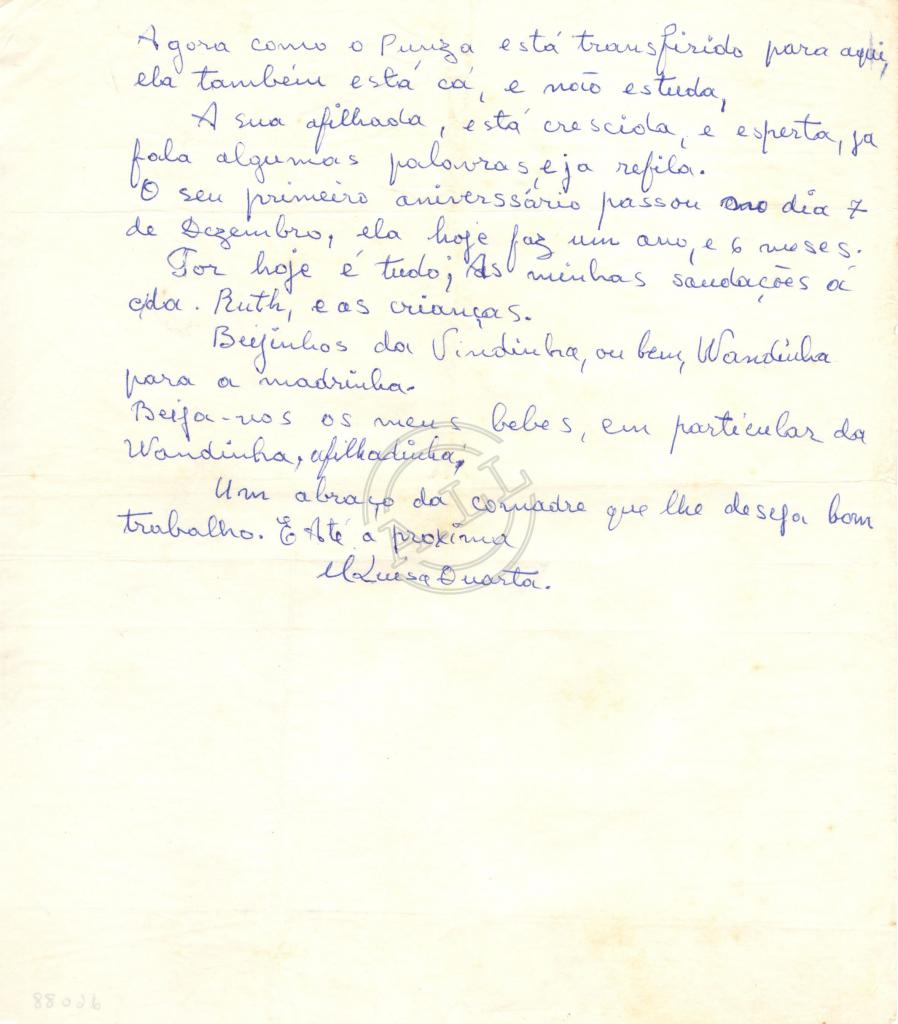 Agora como o Punza está transfirido para aqui,
ela também está cá, e não estuda,
A sua afilhada, está crescida, e esperta, ja
fala algumas palavras, e ja refila.
O seu primeiro aniverssário passou no dia 7
de Dezembro, ela hoje faz um ano, e 6 meses.
Por hoje é tudo; As minhas saudações á
cda. Ruth, e as crianças.
Beijinhos da Vindinha, ou bem, Wandinha
para a madrinha.
Beija-vos os meus bebes, em particular da
Wandinha, afilhadinha,
Um abraço da comadre que lhe deseja bom
trabalho. E Até a proxima
M Luisa Quarta.
ALL
88026